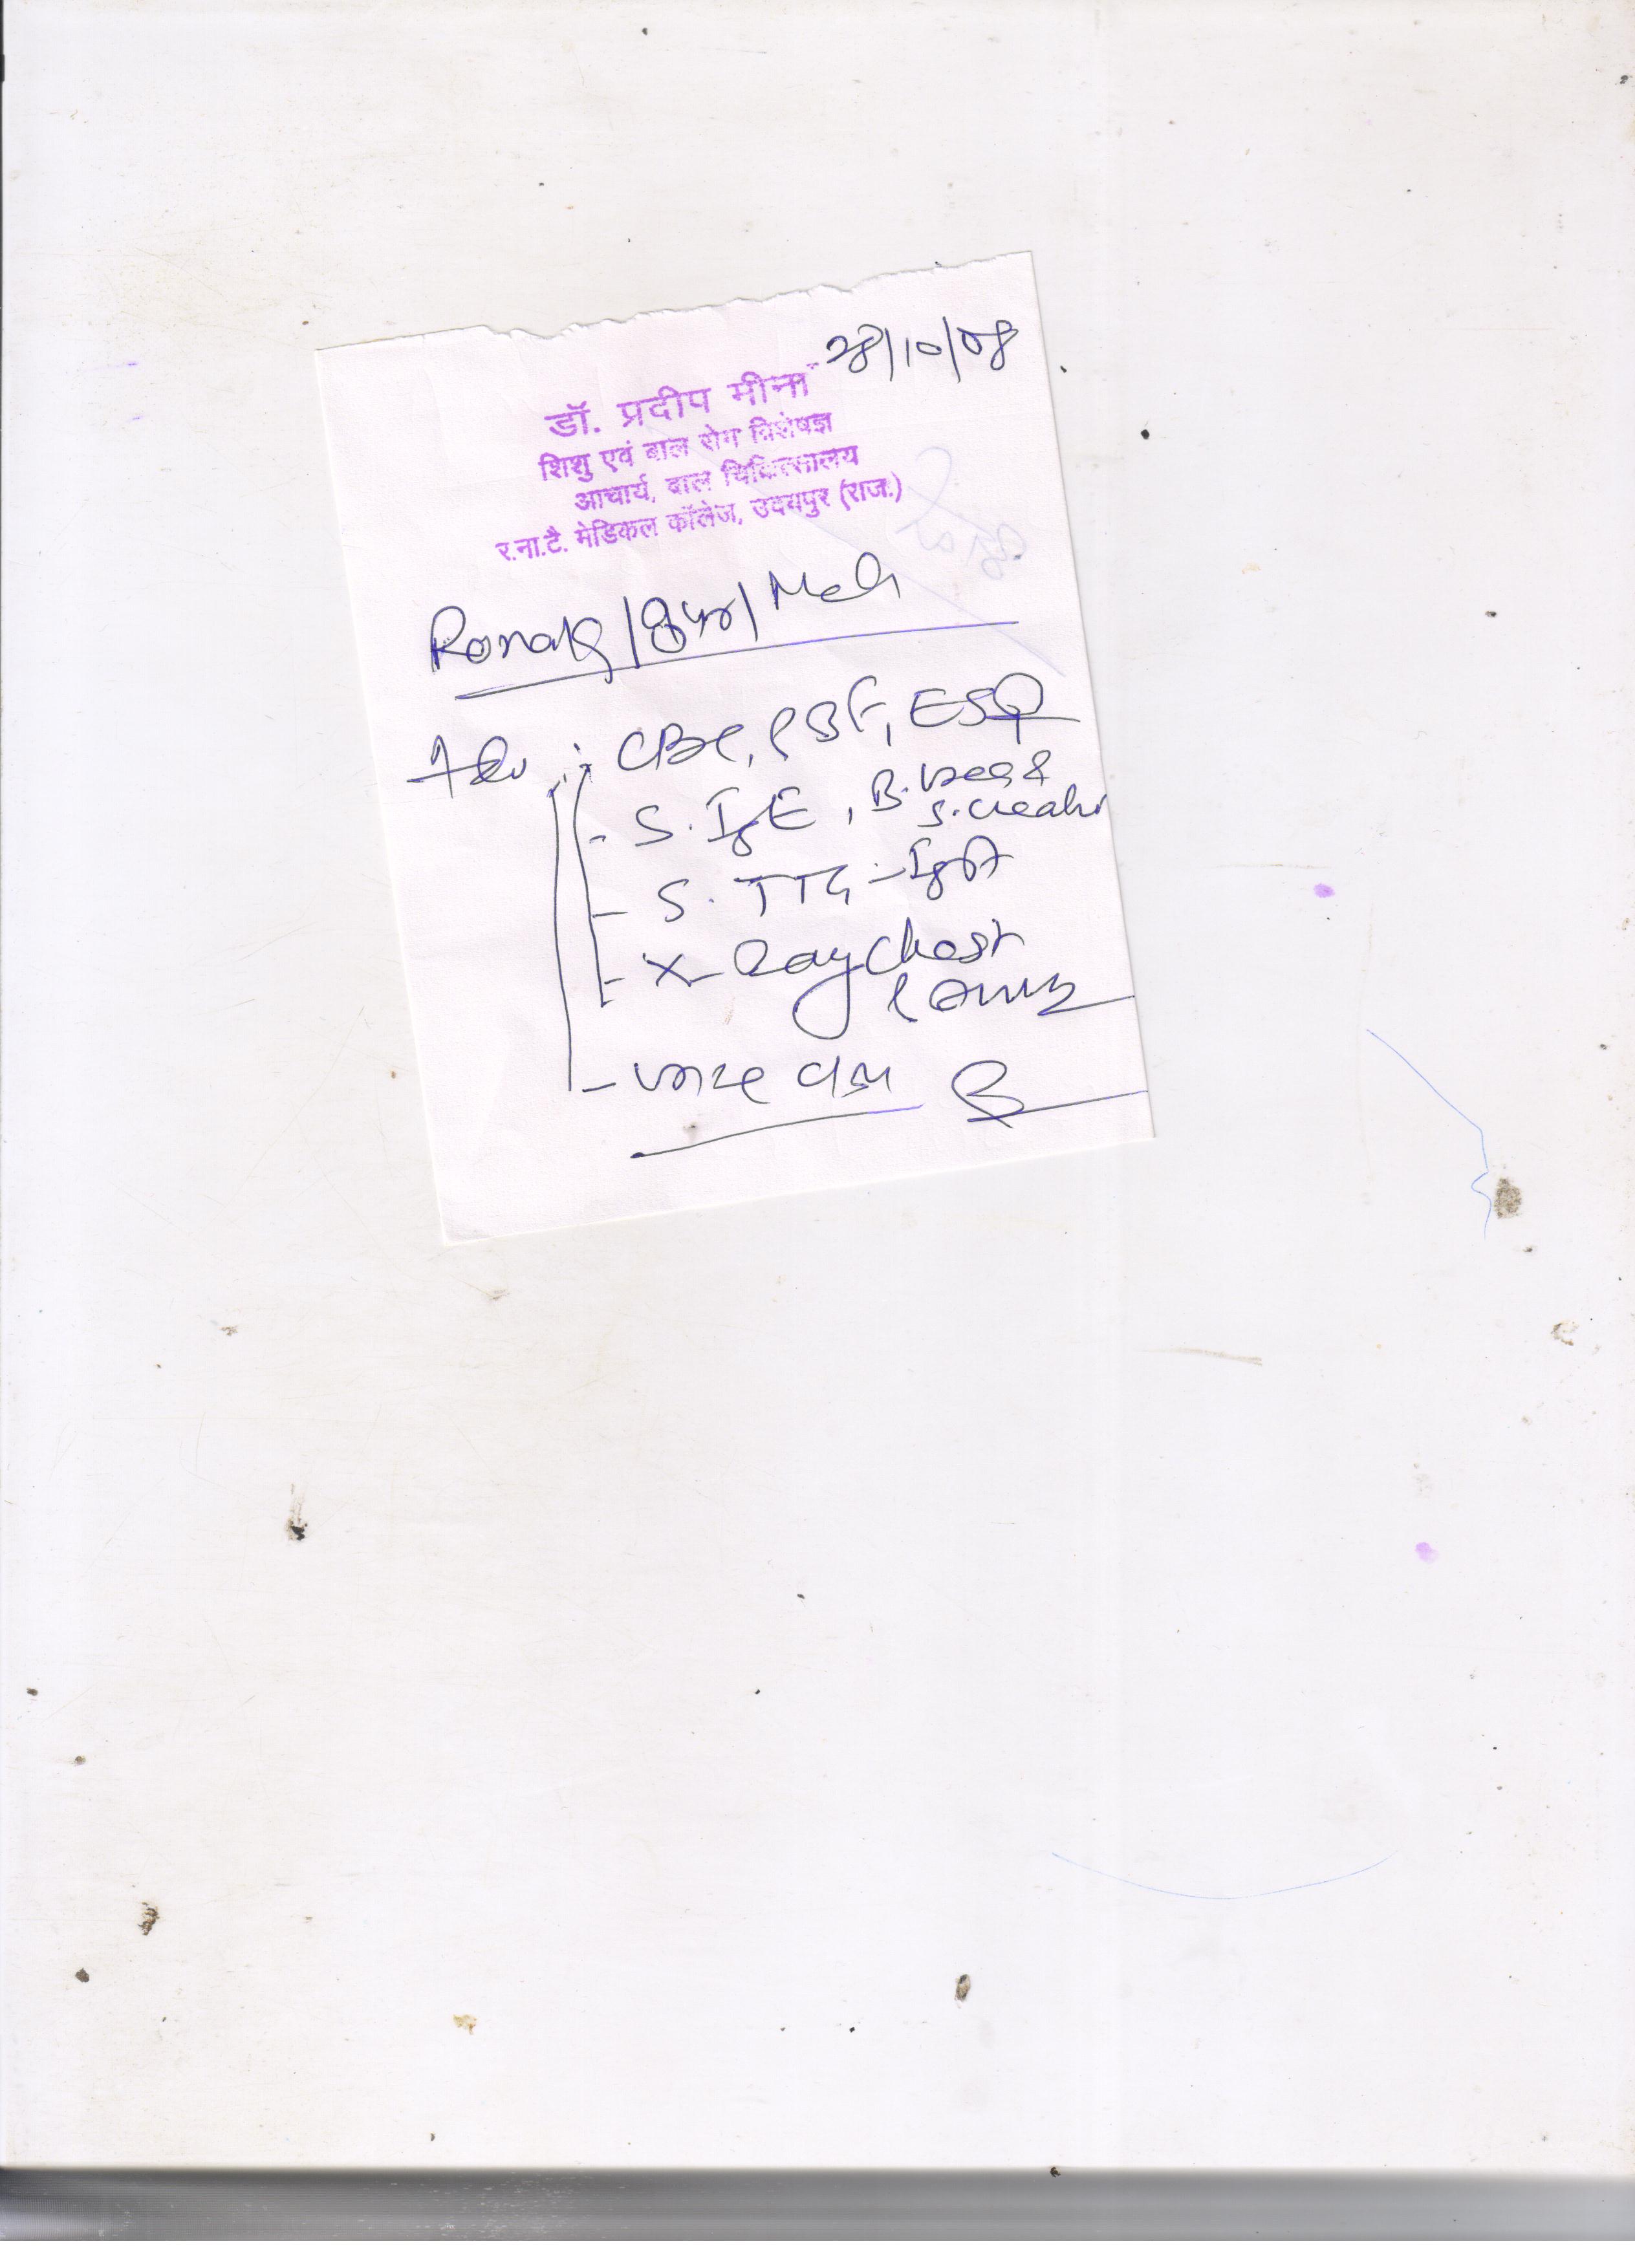 28/10/08
डॉ. प्रदीप मीना
शिशु एवं बाल रोग विशेषज्ञ
आचार्य, बाल चिकित्सालय
र.ना.टै. मेडिकल कॉलेज, उदयपुर (राज.)
Ronak / 8yr /
Adv : CBC, PBF, ESR
- S. IgE, B. Urea &
S. Creatin
- S. TTG - IgA
- X-Ray Chest